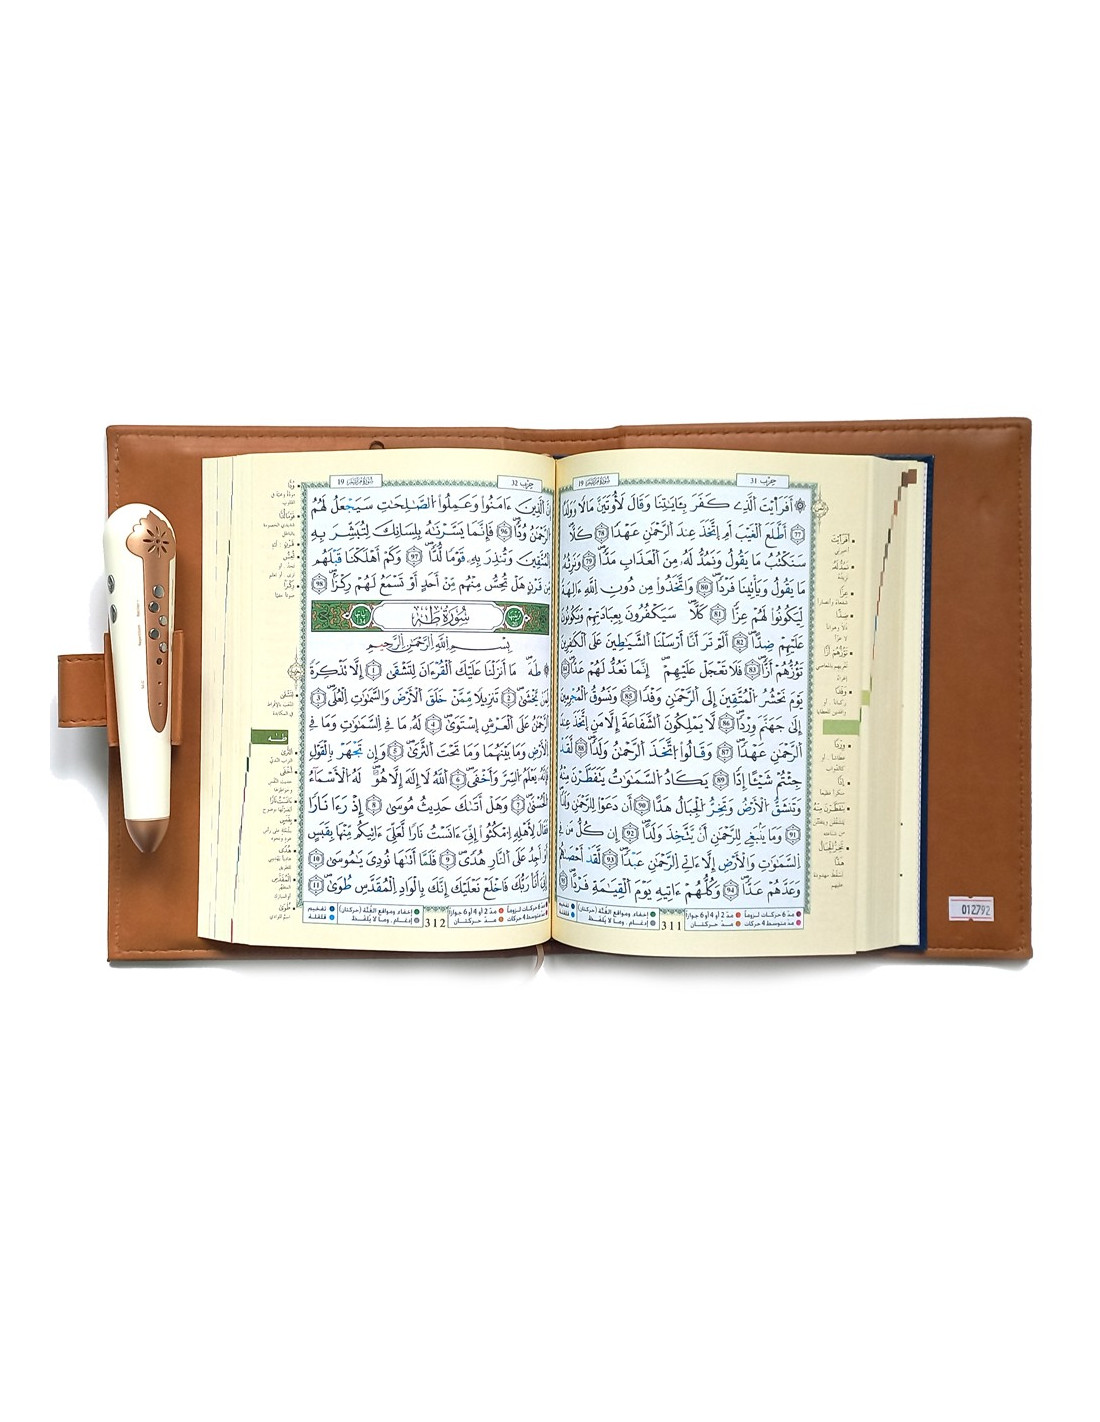 حزب 31
سورة مريم 19
۞ أَفَرَأَيْتَ الَّذِي كَفَرَ بِـَٔايَٰتِنَا وَقَالَ لَأُوتَيَنَّ مَالًا وَوَلَدًا
77 أَطَّلَعَ الْغَيْبَ أَمِ اتَّخَذَ عِندَ الرَّحْمَٰنِ عَهْدًا 78 كَلَّا
سَنَكْتُبُ مَا يَقُولُ وَنَمُدُّ لَهُ مِنَ الْعَذَابِ مَدًّا 79 وَنَرِثُهُ
مَا يَقُولُ وَيَأْتِينَا فَرْدًا 80 وَاتَّخَذُوا مِن دُونِ اللَّهِ ءَالِهَةً
لِّيَكُونُوا لَهُمْ عِزًّا 81 كَلَّا سَيَكْفُرُونَ بِعِبَادَتِهِمْ وَيَكُونُونَ
عَلَيْهِمْ ضِدًّا 82 أَلَمْ تَرَ أَنَّا أَرْسَلْنَا الشَّيَٰطِينَ عَلَى الْكَٰفِرِينَ
تَؤُزُّهُمْ أَزًّا 83 فَلَا تَعْجَلْ عَلَيْهِمْ إِنَّمَا نَعُدُّ لَهُمْ عَدًّا 84
يَوْمَ نَحْشُرُ الْمُتَّقِينَ إِلَى الرَّحْمَٰنِ وَفْدًا 85 وَنَسُوقُ الْمُجْرِمِينَ
إِلَىٰ جَهَنَّمَ وِرْدًا 86 لَّا يَمْلِكُونَ الشَّفَٰعَةَ إِلَّا مَنِ اتَّخَذَ عِندَ
الرَّحْمَٰنِ عَهْدًا 87 وَقَالُوا اتَّخَذَ الرَّحْمَٰنُ وَلَدًا 88 لَّقَدْ
جِئْتُمْ شَيْـًٔا إِدًّا 89 يَكَادُ السَّمَٰوَٰتُ يَتَفَطَّرْنَ مِنْهُ
وَتَنشَقُّ الْأَرْضُ وَتَخِرُّ الْجِبَالُ هَدًّا 90 أَن دَعَوْا لِلرَّحْمَٰنِ وَلَدًا
91 وَمَا يَنۢبَغِي لِلرَّحْمَٰنِ أَن يَتَّخِذَ وَلَدًا 92 إِن كُلُّ مَن فِي
السَّمَٰوَٰتِ وَالْأَرْضِ إِلَّا ءَاتِي الرَّحْمَٰنِ عَبْدًا 93 لَّقَدْ أَحْصَىٰهُمْ
وَعَدَّهُمْ عَدًّا 94 وَكُلُّهُمْ ءَاتِيهِ يَوْمَ الْقِيَٰمَةِ فَرْدًا 95
مدّ 6 حركات لزوماً مدّ 2 أو 4 أو 6 جوازاً إخفاء ومواقع الغُنَّة (حركتان) تفخيم
مدّ متوسط 4 حركات مدّ حركتان إدغام ، وما لا يُلفَظ قلقلة
311
أَفَرَأَيْتَ
أخبرني
نَمُدُّ لَهُ
عِزًّا
ضِدًّا
تَؤُزُّهُمْ أَزًّا
وَفْدًا
وِرْدًا
إِدًّا
يَتَفَطَّرْنَ مِنْهُ
تَخِرُّ الْجِبَالُ
هَدًّا
حزب 32
سورة مريم 19
إِنَّ الَّذِينَ ءَامَنُوا وَعَمِلُوا الصَّٰلِحَٰتِ سَيَجْعَلُ لَهُمُ
الرَّحْمَٰنُ وُدًّا 96 فَإِنَّمَا يَسَّرْنَٰهُ بِلِسَانِكَ لِتُبَشِّرَ بِهِ
الْمُتَّقِينَ وَتُنذِرَ بِهِ قَوْمًا لُّدًّا 97 وَكَمْ أَهْلَكْنَا قَبْلَهُم
مِّن قَرْنٍ هَلْ تُحِسُّ مِنْهُم مِّنْ أَحَدٍ أَوْ تَسْمَعُ لَهُمْ رِكْزًا 98
سُورَةُ طه
بِسْمِ اللَّهِ الرَّحْمَٰنِ الرَّحِيمِ
طه مَا أَنزَلْنَا عَلَيْكَ الْقُرْءَانَ لِتَشْقَىٰ 1 إِلَّا تَذْكِرَةً
لِّمَن يَخْشَىٰ 2 تَنزِيلًا مِّمَّنْ خَلَقَ الْأَرْضَ وَالسَّمَٰوَٰتِ الْعُلَى 3
الرَّحْمَٰنُ عَلَى الْعَرْشِ اسْتَوَىٰ 4 لَهُ مَا فِي السَّمَٰوَٰتِ وَمَا فِي
الْأَرْضِ وَمَا بَيْنَهُمَا وَمَا تَحْتَ الثَّرَىٰ 5 وَإِن تَجْهَرْ بِالْقَوْلِ
فَإِنَّهُ يَعْلَمُ السِّرَّ وَأَخْفَى 6 اللَّهُ لَا إِلَٰهَ إِلَّا هُوَ لَهُ الْأَسْمَاءُ
الْحُسْنَىٰ 7 وَهَلْ أَتَىٰكَ حَدِيثُ مُوسَىٰ 8 إِذْ رَءَا نَارًا
فَقَالَ لِأَهْلِهِ امْكُثُوا إِنِّي ءَانَسْتُ نَارًا لَّعَلِّي ءَاتِيكُم مِّنْهَا بِقَبَسٍ
أَوْ أَجِدُ عَلَى النَّارِ هُدًى 9 فَلَمَّا أَتَىٰهَا نُودِيَ يَٰمُوسَىٰ 10
إِنِّي أَنَا رَبُّكَ فَاخْلَعْ نَعْلَيْكَ إِنَّكَ بِالْوَادِ الْمُقَدَّسِ طُوًى 11
مدّ 6 حركات لزوماً مدّ 2 أو 4 أو 6 جوازاً إخفاء ومواقع الغُنَّة (حركتان) تفخيم
مدّ متوسط 4 حركات مدّ حركتان إدغام ، وما لا يُلفَظ قلقلة
312
وُدًّا
قَوْمًا لُّدًّا
رِكْزًا
لِتَشْقَىٰ
طه
الثَّرَىٰ
أَخْفَى
بِقَبَسٍ
هُدًى
الْمُقَدَّسِ
طُوًى
012792